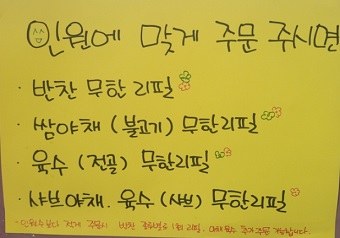 인원에 맞게 주문 주시면
· 반찬 무한리필
· 쌈야채 (불고기) 무한리필
· 육수 (전골) 무한리필
· 샤브야채. 육수 (샤브) 무한리필
· 인원수보다 적게 주문시 반찬 종류별로 1회 리필.